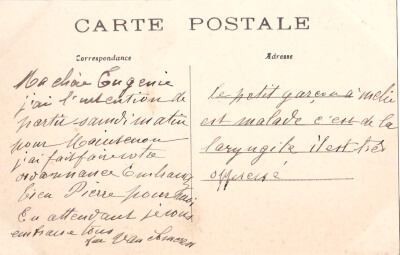 CARTE POSTALE
Correspondance
Adresse
Ma chère Eugenie
j'ai l'intention de
partir samdi matin
pour Maintenon
j'ai fait faire votre
ordonnance Embrassez
bien Pierre pour moi
En attendant je vous
embrasse tous
Van
le petit garçon à
est malade c'est de la
laryngite il est très
oppressé